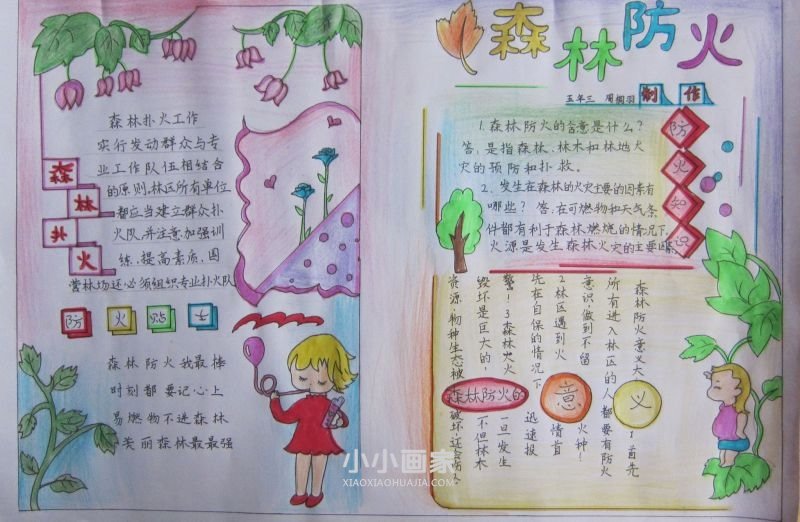 森林防火
五年三 周桐羽 制作
森林扑火工作
实行发动群众与专
业工作队伍相结合
的原则,林区所有单位
都应当建立群众扑
火队,并注意加强训
练,提高素质,国
营林场还必须组织专业扑火队
森林扑火
防火
森林防火我最棒
时刻都要记心上
易燃物不进森林
美丽森林最最强
1.森林防火的含意是什么?
答:是指森林、林木和林地火
灾的预防和扑救。
2、发生在森林的火灾主要的因素有
哪些? 答:在可燃物和天气条
件都有利于森林燃烧的情况下,
火源是发生森林火灾的主要因素
防火知识
森林防火的意义
森林防火意义大
1首先
所有进入林区的人都要有防火
意识,做到不留火种!
2林区遇到火情首
先在自保的情况下迅速报
警!3森林火灾一旦发生
毁坏是巨大的,不但林木
资源、物种生态被破坏,还会
小小画家
XIAOXIAOHUAJIA.COM